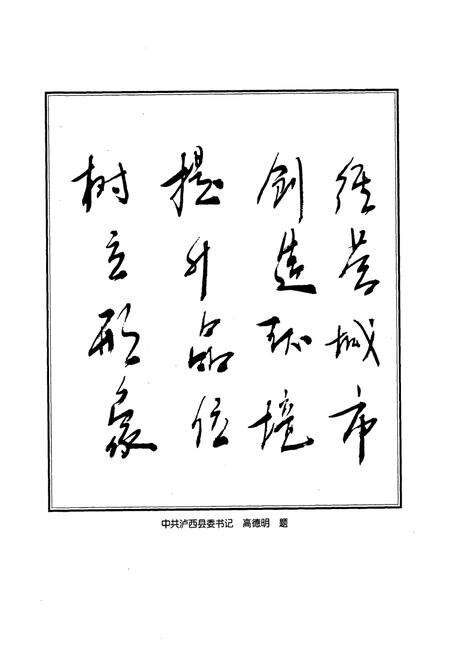 经营城市
创造环境
提升品位
树立形象
中共泸西县委书记 高德明 题